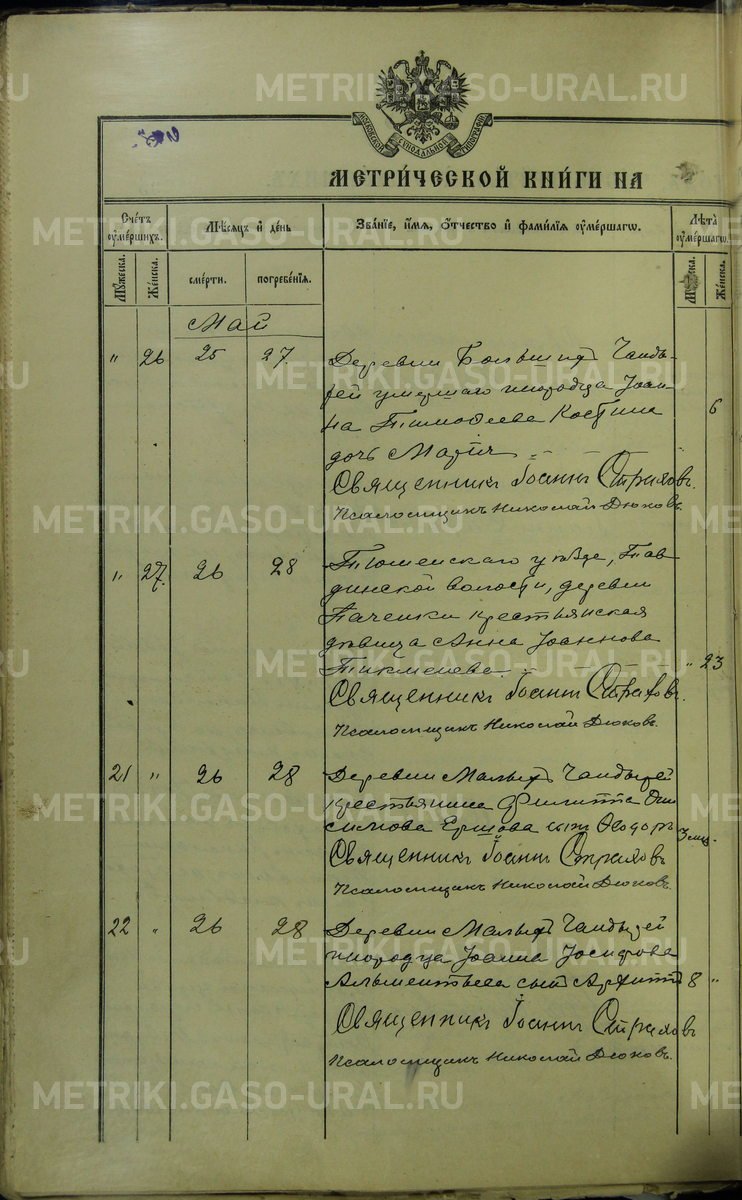 METRIKI.GASO-URAL.RU
МОСКОВСКОЙ СѴНОДАЛЬНОЙ ТИПОГРАФІИ
МЕТРИ́ЧЕСКОЙ КНИ́ГИ НА
Сче́тъ ᲂу҆ме́ршихъ.
Мѣ́сяцъ и҆ де́нь
Зва́нїе, и҆́мя, ѻ҆́тчество и҆ фами́лїя ᲂу҆ме́ршагѡ.
Лѣ́та ᲂу҆ме́ршагѡ.
Мꙋ́жеска.
Же́нска.
сме́рти.
погребе́нїя.
Мꙋ́жеска.
Же́нска.
Май
" 26 25 27. Деревни Большихъ Чанды-
рей умершаго инородца Іоан-
на Тимоѳеева Костина 6
дочь Марія
Священникъ Іоаннъ Страховъ.
Псаломщикъ Николай Дюковъ.
" 27. 26 28 Тюменскаго уѣзда, Тав-
динской волости, деревни
Паченки крестьянская
дѣвица Анна Іоаннова
" 23
Священникъ Іоаннъ Страховъ.
Псаломщикъ Николай Дюковъ.
21 " 26 28 Деревни Малыхъ Чандырей
крестьянина Филиппа Они-
симова Ершова сынъ Ѳеодоръ 3 мѣс.
Священникъ Іоаннъ Страховъ
Псаломщикъ Николай Дюковъ.
22 " 26 28 Деревни Малыхъ Чандырей
инородца Іоанна Іосифова
Альментьева сынъ Архиппъ 8 "
Священникъ Іоаннъ Страховъ
Псаломщикъ Николай Дюковъ.